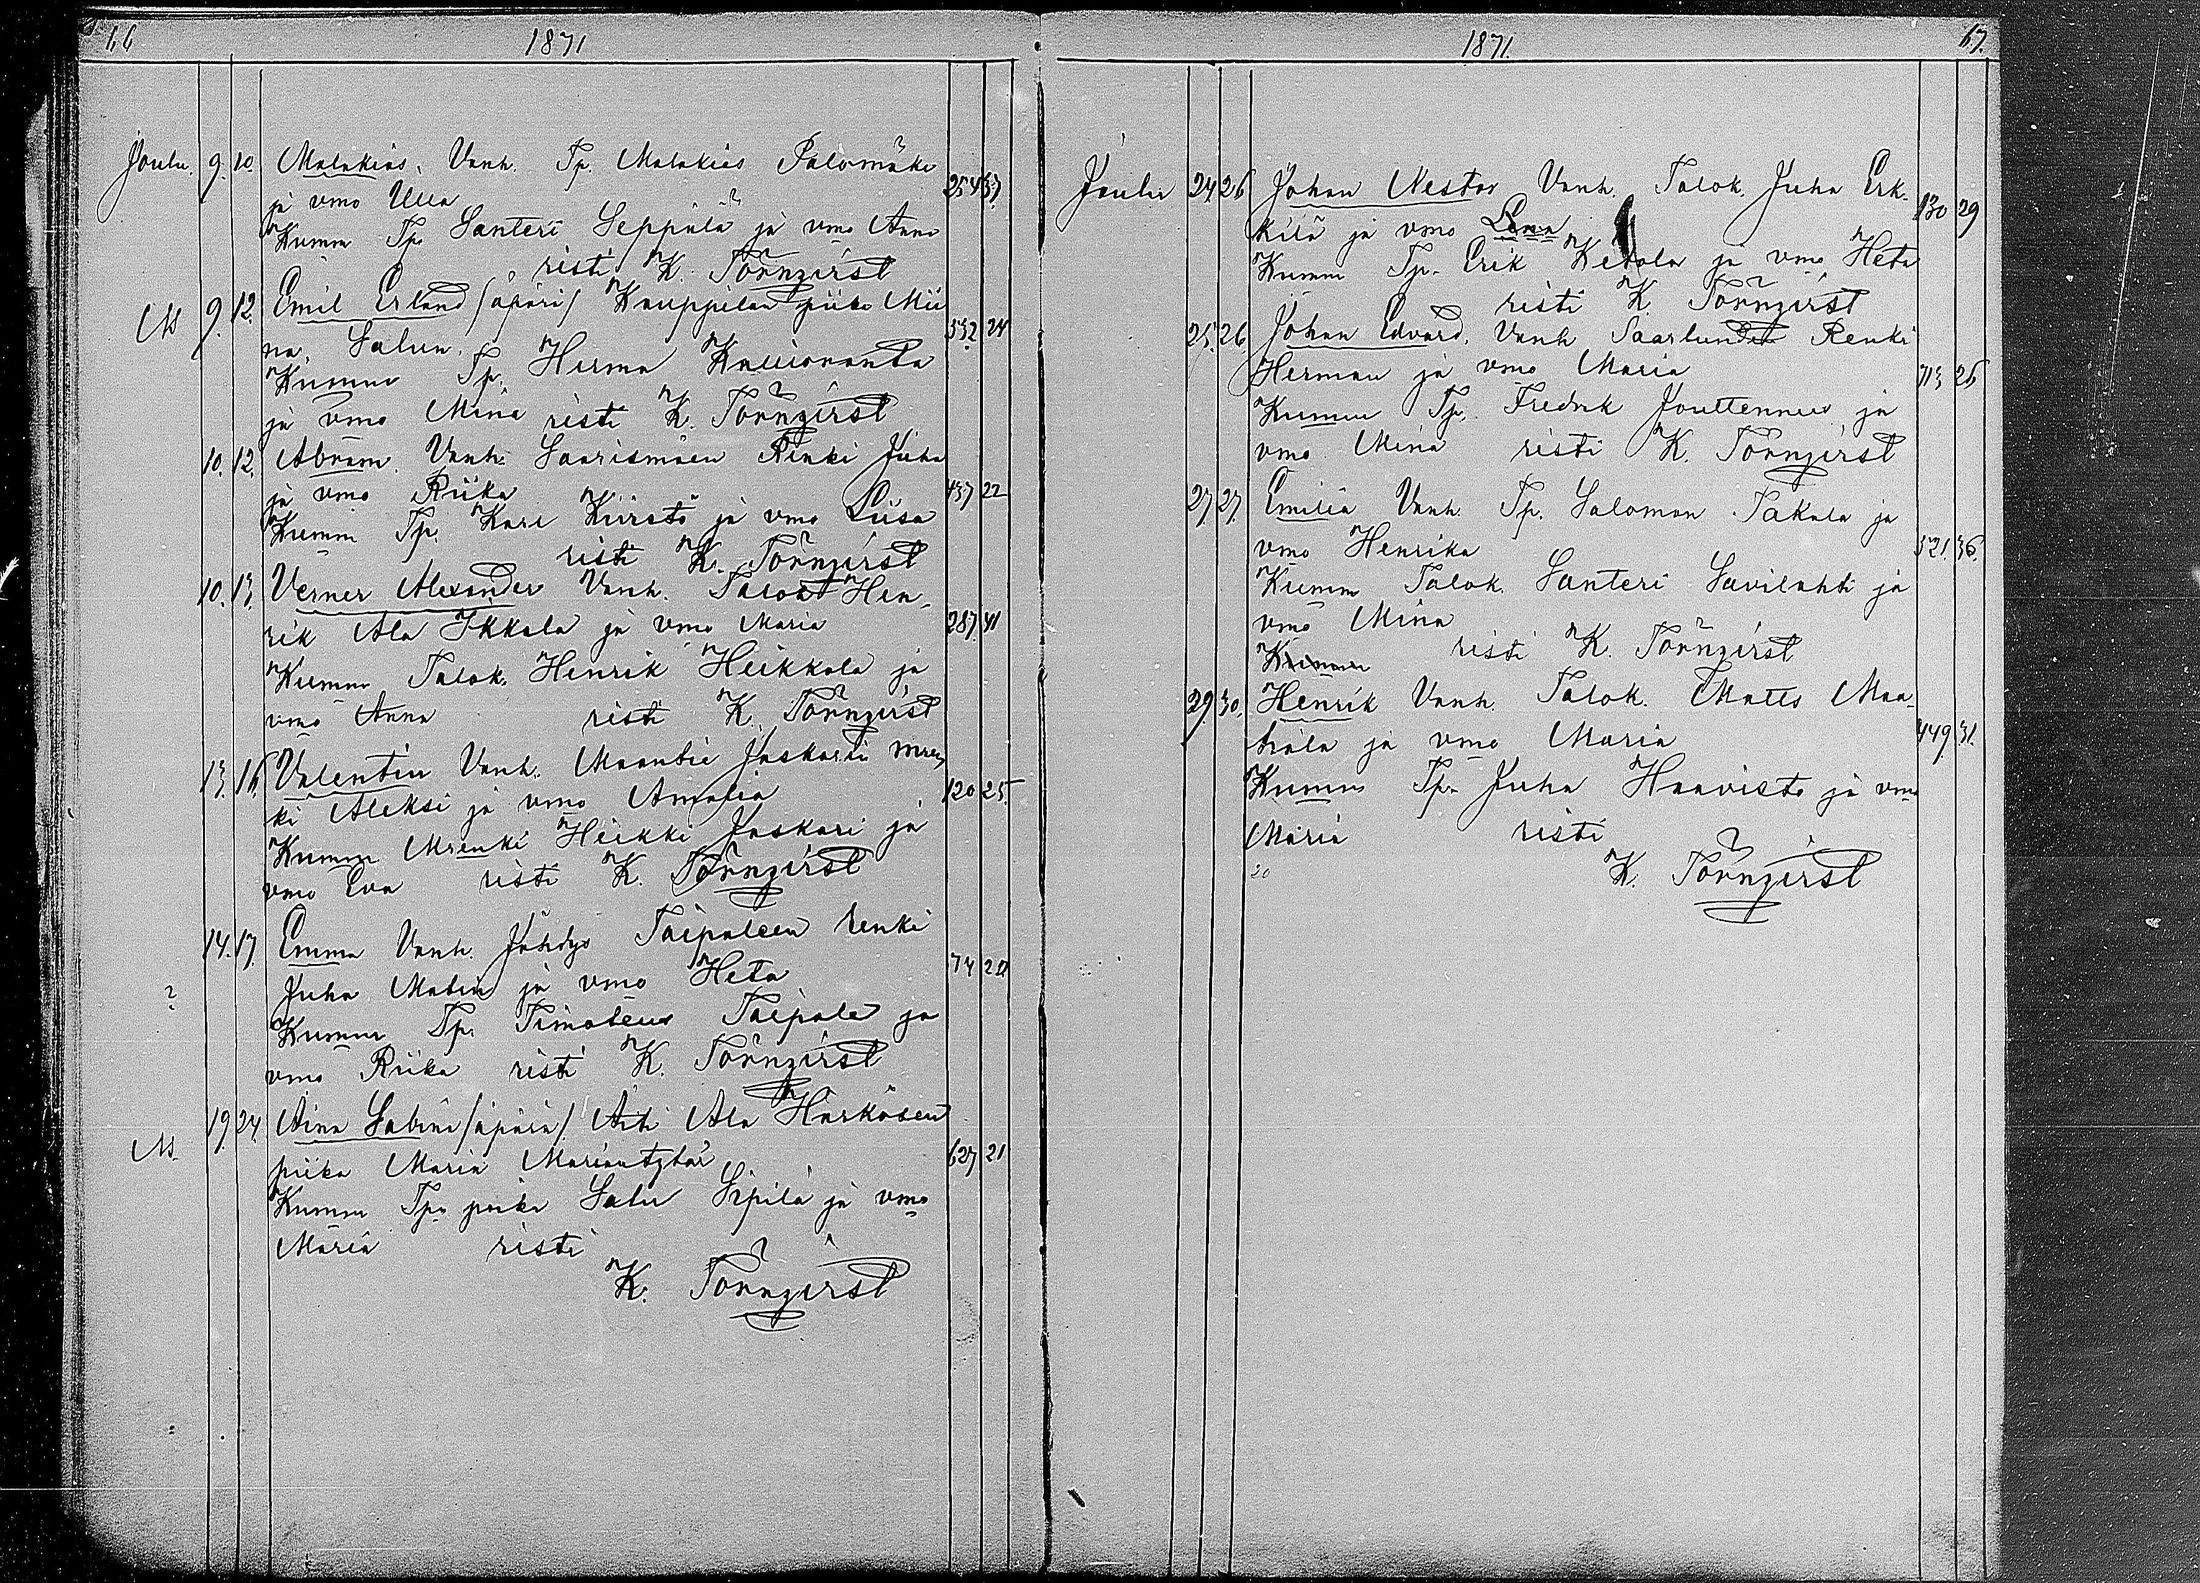 66 1871
Joulu. 9. 10. Malakias, Vanh. Tp. Malakias Palomäki
ja vmo Ulla 254 37.
Kumm Tp. Santeri Seppälä ja vmo Anna
risti K. Törnqvist
9. 12. Emil Erland /äpärä/ Knuppelan piika Mii
na, Salun. 532 24
Kumm Tp. Herma Kallioranta
ja vmo Mina risti K. Törnqvist
10. 12. Abram. Vanh. Saarismäen Renki Juha
ja vmo Riika 437 22
Kumm Tp. Karl Kiirstö ja vmo Liisa
risti K. Törnqvist
10. 13. Verner Alexander Vanh. Talok Hen-
rik Ala Ikkala ja vmo Maria 287 41
Kumm Talok. Henrik Heikkola ja
vmo Anna risti K. Törnqvist
13. 16. Valentin Vanh. Jaskarin mren
ki Aleksi ja vmo Amalia 120 25.
Kumm Mrenki Heikki Jaskari ja
vmo Eva risti K. Törnqvist
14. 17. Emma Vanh. Taipaleen renki
Juha Matin ja vmo Heta 74
Kumm Tp. Timoteus Taipale ja
vmo Riika risti K. Törnqvist
19. 24. Aina Sabina /äpärä/ Äiti Ala Härkösen
piika Maria Mariantytär 627 21
Kumm Tp. poika Salu Sipilä ja vmo
Maria risti
K. Törnqvist
1871. 67.
Joulu 24. 26 Johan Nestor Vanh. Talok. Juha Erk-
kilä ja vmo Leena 130 29
Kumm Tp. Erik Ketola ja vmo Heta
risti K. Törnqvist
25. 26. Johan Edvard. Vanh Saarlundin Renki
Herman ja vmo Maria 713 26
Kumm Tp. Fredrik Jouttennus ja
vmo Mina risti K. Törnqvist
27. 27. Emilia Vanh. Tp. Salomon Takala ja
vmo Henrika 321. 36.
Kumm Talok. Santeri Savilahti ja
vmo Mina
Kumm risti K. Törnqvist
29. 30. Henrik Vanh. Talok. Matts Maa-
hala ja vmo Maria 449. 31.
Kumm Tp. Juha Haavisto ja vmo
Maria risti
20 K. Törnqvist